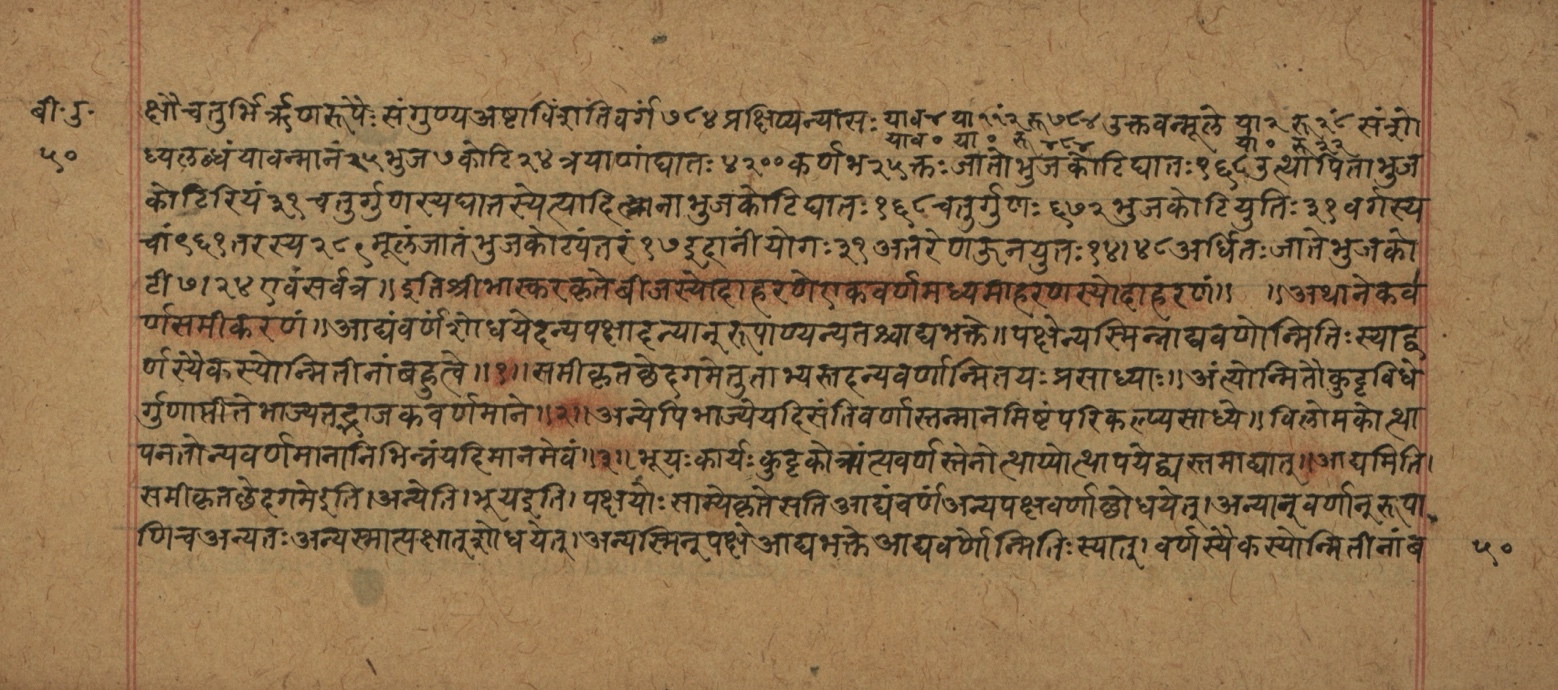 बी॰ उ॰
क्षौ चतुर्भिर्ऋणरूपैः संगुण्य अष्टाविंशतिवर्गं ७८४ प्रक्षिप्य न्यासः याव४ या रू७८४ उक्तवन्मूले या२ रू२८ संशो
याव० या० रू
५०
ध्यलब्धं यावन्मानं २५ भुज ७ कोटि २४ त्रयाणांघातः ४२०० कर्णभ २५ क्तः जातो भुजकोटिघातः १६८ उत्थापिता भुज
कोटिरियं ३१ चतुर्गुणस्यघातस्येत्यादि भुजकोटिघातः १६८ चतुर्गुणः ६७२ भुजकोटियुतिः ३१ वर्गस्य
चां ९६१ तरस्य २८९ मूलं जातं भुजकोट्यंतरं १७ इदानीं योगः ३१ अंतरेण ऊनयुतः १४।४८ अर्धितः जाते भुजको
टी ७।२४ एवं सर्वत्र॥ इति श्रीभास्करकृते बीजस्योदाहरणे एकवर्णमध्यमाहरणस्योदाहरणं॥ ॥ अथानेकव
र्णसमीकरणं॥ आद्यं वर्णं शोधयेदन्यपक्षादन्यान् रूपाण्यन्यतश्चाद्यभक्ते॥ पक्षेन्यस्मिन्नाद्यवर्णोन्मितिः स्याद्व
र्णस्यैकस्योन्मितीनां बहुत्वे॥१॥ समीकृतछेदगमे तु ताभ्यस्तदन्यवर्णोन्मितयः प्रसाध्याः॥ अंत्योन्मितौ कुट्टविधे
र्गुणाप्तीते भाज्यतद्भाजकवर्णमाने॥२॥ अन्येपि भाज्ये यदि संति वर्णास्तन्मानमिष्टं परिकल्प्य साध्ये॥ विलोमकोत्था
पनतोन्यवर्णमानानि भिन्नं यदि मानमेवं॥३॥ भूयः कार्यः कुट्टकोत्रांत्यवर्णस्तेनोत्थाप्योत्थापयेद्व्यस्तमाद्यात्॥ आद्यमिति।
समीकृतछेदगमे इति। अन्येति। भूय इति। पक्षयोः साम्ये कृते सति आद्यं वर्णं अन्यपक्षवर्णाच्छोधयेत्। अन्यान् वर्णान् रूपा
णि च अन्यतः अन्यस्मात्पक्षात् शोधयेत्। अन्यस्मिन् पक्षे आद्यभक्ते आद्यवर्णोन्मितिः स्यात्। वर्णस्यैकस्योन्मितीनां ब
५०